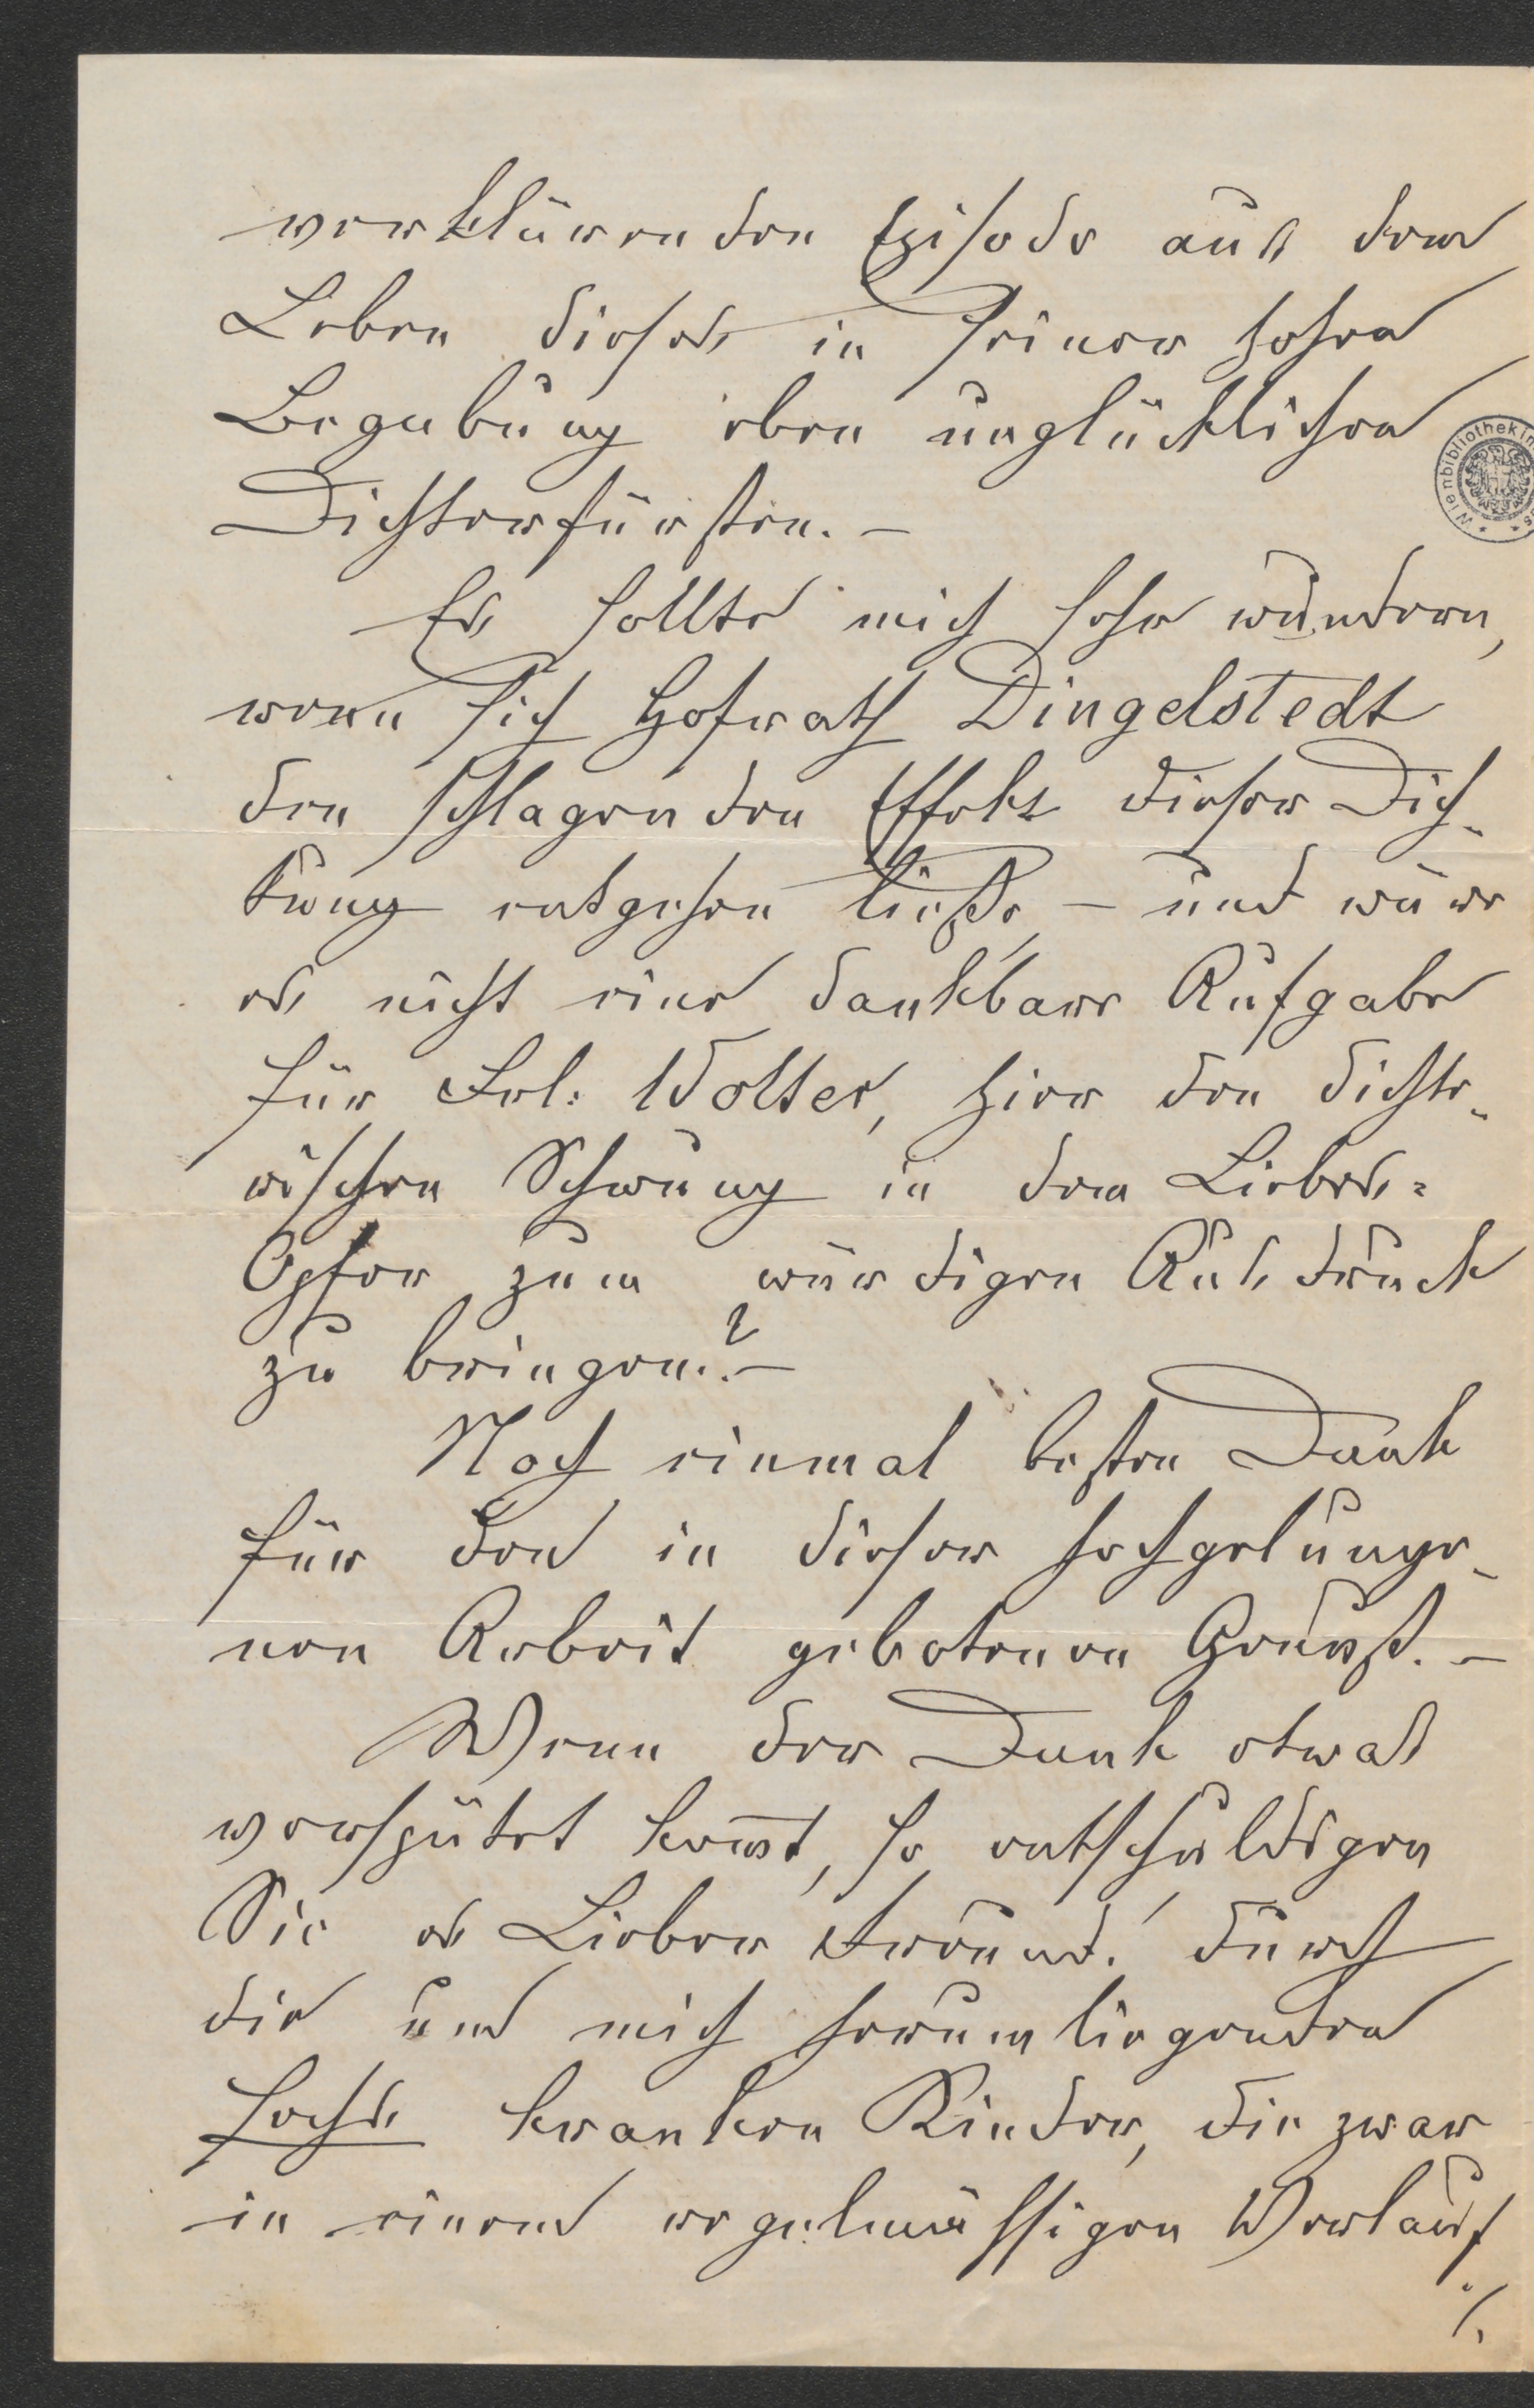 verklärenden Episode aus dem
Leben dieses in seiner hohen
Begabung eben unglücklichen
Dichterfürsten. –
Es sollte mich sehr wundern,
wenn sich Hofrath Dingelstedt
den schlagenden Effekt dieser Dich-
tung entgehen ließe, – und wäre
es nicht eine dankbare Aufgabe
für Frl: Wolter, hier den dichte-
rischen Schwung in dem Liebes-
Opfer zum würdigen Ausdruck
zu bringen? –
Noch einmal besten Dank
für den in dieser hochgelunge-
nen Arbeit gebotenen Genuß. –
Wenn der Dank etwas
verspätet kom̄t, so entschuldigen
Sie es Lieber Freund! durch
die um mich herumliegenden
sechs kranken Kinder, die zwar
in einem regelmässigen Verlauf
./.
Wienbibliothek im